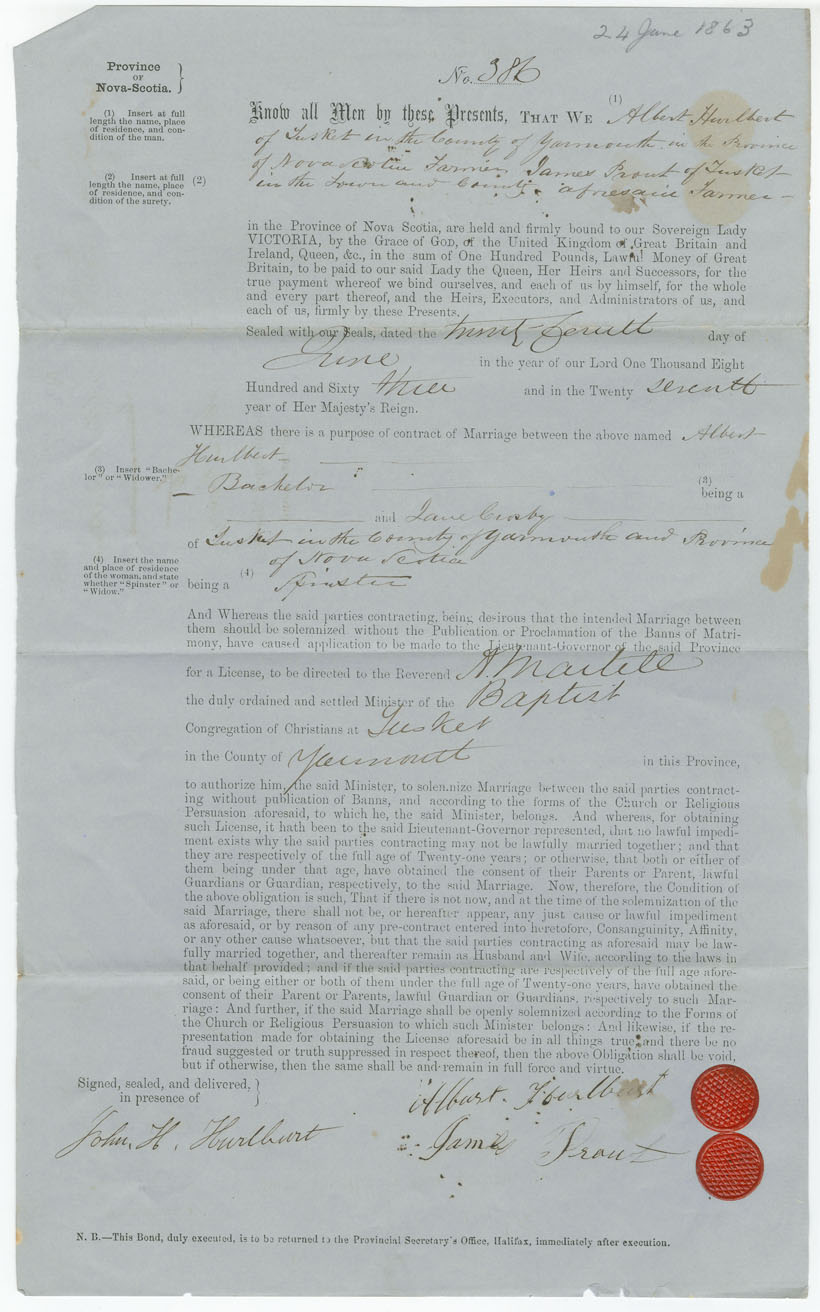 24 June 1863
Province
OF
Nova-Scotia.
No. 386
(1) Insert at full
length the name, place
of residence, and con-
dition of the man.
Know all Men by these Presents, THAT WE (1) Albert Hurlbert
of Tusket in the County of Yarmouth in the Province
of Nova Scotia Farmer James Prout of Tusket
(2) Insert at full
length the name, place
of residence, and con-
dition of the surety.
(2)
in the Town and County aforesaid Farmer
in the Province of Nova Scotia, are held and firmly bound to our Sovereign Lady
VICTORIA, by the Grace of GOD, of the United Kingdom of Great Britain and
Ireland, Queen, &c., in the sum of One Hundred Pounds, Lawful Money of Great
Britain, to be paid to our said Lady the Queen, Her Heirs and Successors, for the
true payment whereof we bind ourselves, and each of us by himself, for the whole
and every part thereof, and the Heirs, Executors, and Administrators of us, and
each of us, firmly by these Presents.
Sealed with our Seals, dated the day of
June in the year of our Lord One Thousand Eight
Hundred and Sixty three and in the Twenty seventh
year of Her Majesty's Reign.
WHEREAS there is a purpose of contract of Marriage between the above named Albert
Hurlbert
(3) Insert "Bache-
lor" or "Widower."
Bachelor (3)
being a
and Jane Crosby
of Tusket in the County of Yarmouth and Province
of Nova Scotia
(4) Insert the name
and place of residence
of the woman, and state
whether "Spinster" or
"Widow."
being a (4) Spinster
And Whereas the said parties contracting, being desirous that the intended Marriage between
them should be solemnized without the Publication or Proclamation of the Banns of Matri-
mony, have caused application to be made to the Lieutenant-Governor of the said Province
for a License, to be directed to the Reverend A. Martell
the duly ordained and settled Minister of the Baptist
Congregation of Christians at Tusket
in the County of Yarmouth in this Province,
to authorize him, the said Minister, to solemnize Marriage between the said parties contract-
ing without publication of Banns, and according to the forms of the Church or Religious
Persuasion aforesaid, to which he, the said Minister, belongs. And whereas, for obtaining
such License, it hath been to the said Lieutenant-Governor represented, that no lawful impedi-
ment exists why the said parties contracting may not be lawfully married together; and that
they are respectively of the full age of Twenty-one years; or otherwise, that both or either of
them being under that age, have obtained the consent of their Parents or Parent, lawful
Guardians or Guardian, respectively, to the said Marriage. Now, therefore, the Condition of
the above obligation is such, That if there is not now, and at the time of the solemnization of the
said Marriage, there shall not be, or hereafter appear, any just cause or lawful impediment
as aforesaid, or by reason of any pre-contract entered into heretofore, Consanguinity, Affinity,
or any other cause whatsoever, but that the said parties contracting as aforesaid may be law-
fully married together, and thereafter remain as Husband and Wife, according to the laws in
that behalf provided; and if the said parties contracting are respectively of the full age afore-
said, or being either or both of them under the full age of Twenty-one years, have obtained the
consent of their Parent or Parents, lawful Guardian or Guardians, respectively to such Mar-
riage: And further, if the said Marriage shall be openly solemnized according to the Forms of
the Church or Religious Persuasion to which such Minister belongs: And likewise, if the re-
presentation made for obtaining the License aforesaid be in all things true; and there be no
fraud suggested or truth suppressed in respect thereof, then the above Obligation shall be void,
but if otherwise, then the same shall be and remain in full force and virtue.
Signed, sealed, and delivered,
in presence of
Albert Hurlbert
John H. Hurlburt
James Prout
N. B.—This Bond, duly executed, is to be returned to the Provincial Secretary's Office, Halifax, immediately after execution.